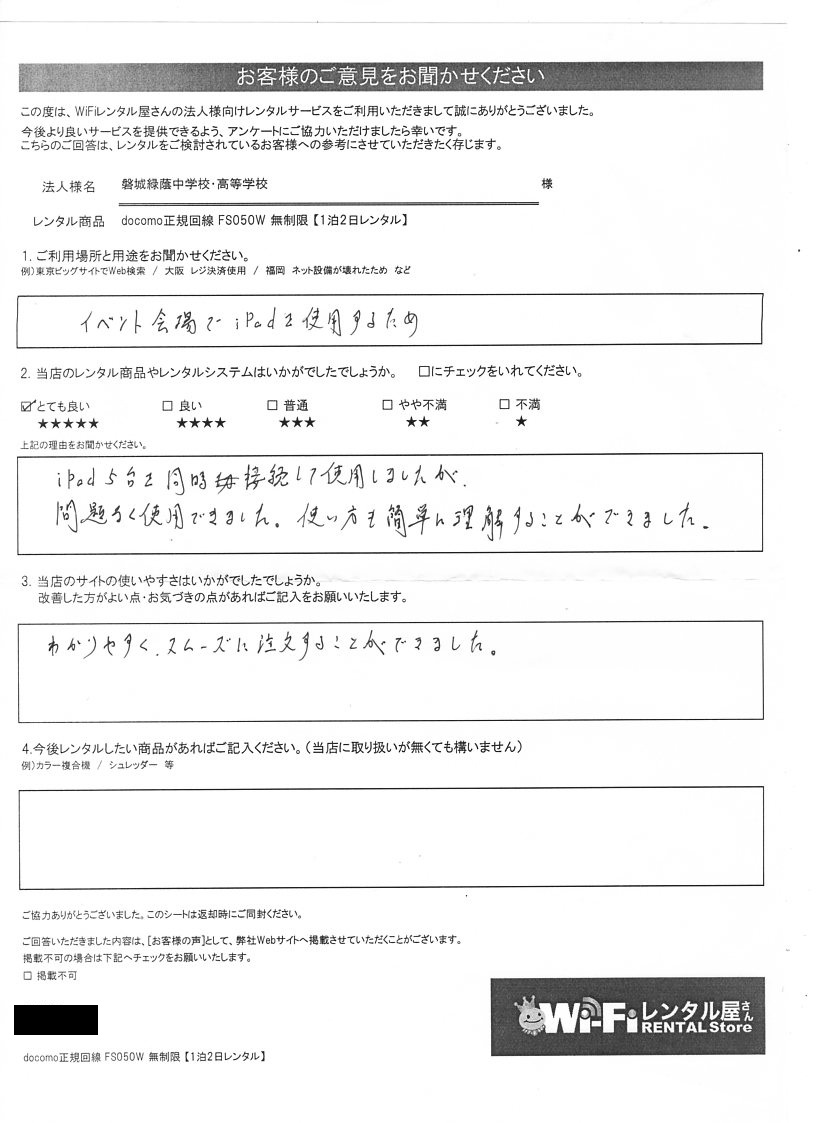 お客様のご意見をお聞かせください
この度は、WiFiレンタル屋さんの法人様向けレンタルサービスをご利用いただきまして誠にありがとうございました。
今後より良いサービスを提供できるよう、アンケートにご協力いただけましたら幸いです。
こちらのご回答は、レンタルをご検討されているお客様への参考にさせていただきたく存じます。
法人様名 磐城緑蔭中学校・高等学校 様
レンタル商品 docomo正規回線 FS050W 無制限【1泊2日レンタル】
1. ご利用場所と用途をお聞かせください。
例)東京ビッグサイトでWeb検索 / 大阪 レジ決済使用 / 福岡 ネット設備が壊れたため など
イベント会場で iPadを使用するため
2. 当店のレンタル商品やレンタルシステムはいかがでしたでしょうか。 □にチェックをいれてください。
☑とても良い □ 良い □ 普通 □ やや不満 □ 不満
★★★★★ ★★★★ ★★★ ★★ ★
上記の理由をお聞かせください。
iPad 5台を同時接続して使用しましたが、
問題なく使用できました。使い方も簡単に理解することができました。
3. 当店のサイトの使いやすさはいかがでしたでしょうか。
改善した方がよい点・お気づきの点があればご記入をお願いいたします。
わかりやすく、スムーズに注文することができました。
4.今後レンタルしたい商品があればご記入ください。(当店に取り扱いが無くても構いません)
例)カラー複合機 / シュレッダー 等
ご協力ありがとうございました。このシートは返却時にご同封ください。
ご回答いただきました内容は、[お客様の声]として、弊社Webサイトへ掲載させていただくことがございます。
掲載不可の場合は下記へチェックをお願いいたします。
□ 掲載不可
Wi-Fiレンタル屋さん
RENTAL Store
docomo正規回線 FS050W 無制限【1泊2日レンタル】